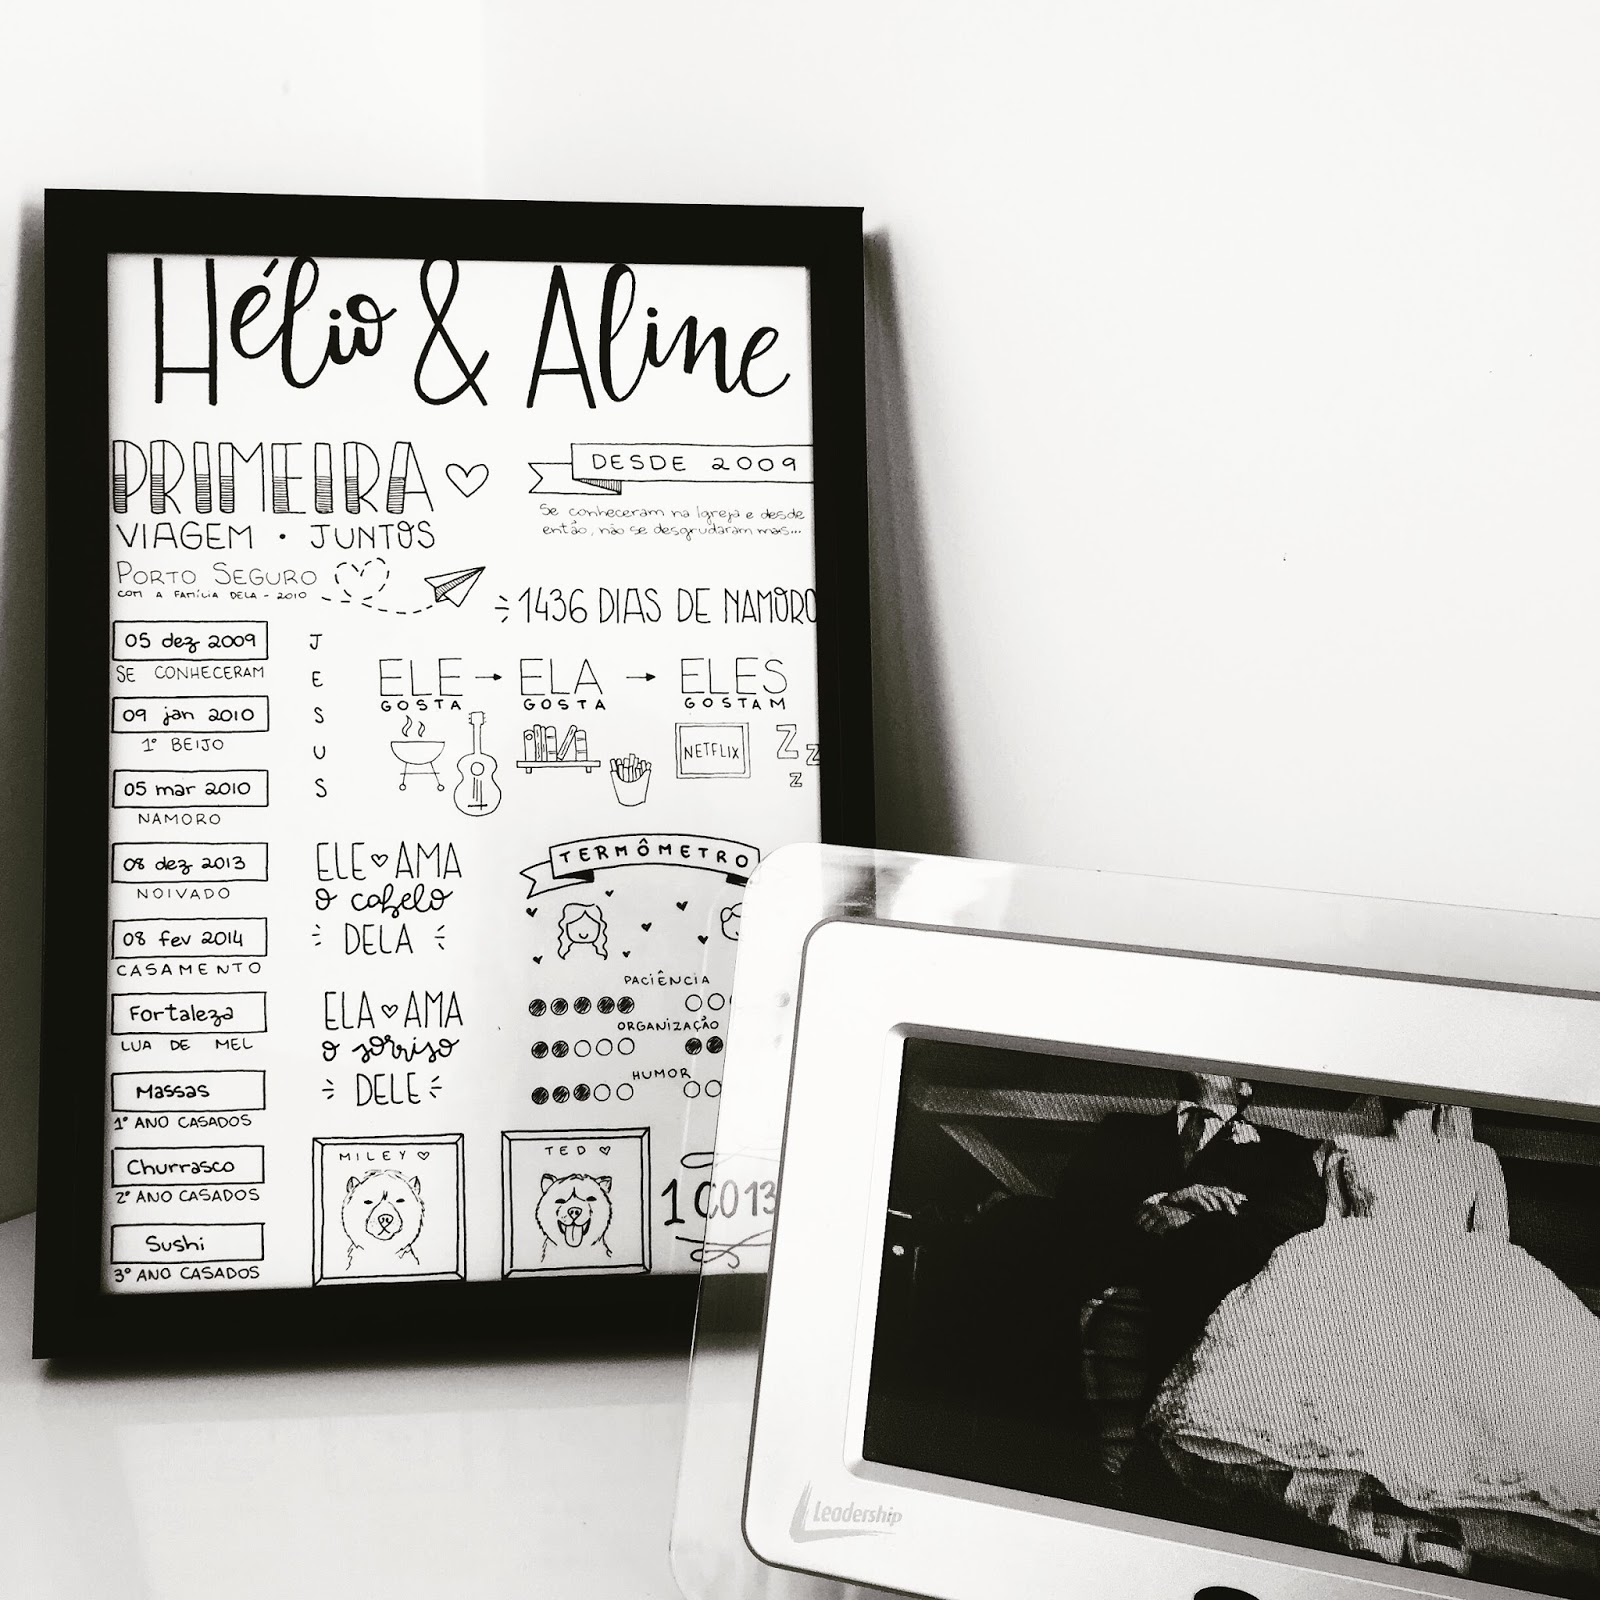 Hélio & Aline
PRIMEIRA
VIAGEM · JUNTOS
PORTO SEGURO
COM A FAMÍLIA DELA - 2010
DESDE 2009
Se conheceram na Igreja e desde
então, não se desgrudaram mais...
1436 DIAS DE NAMORO
05 dez 2009
SE CONHECERAM
09 jan 2010
1º BEIJO
05 mar 2010
NAMORO
08 dez 2013
NOIVADO
08 fev 2014
CASAMENTO
Fortaleza
LUA DE MEL
Massas
1º ANO CASADOS
Churrasco
2º ANO CASADOS
Sushi
3º ANO CASADOS
JESUS
ELE → ELA → ELES
GOSTA GOSTA GOSTAM
NETFLIX
Z Z Z
ELE AMA
o cabelo
DELA
ELA AMA
o sorriso
DELE
TERMÔMETRO
PACIÊNCIA
ORGANIZAÇÃO
HUMOR
MILEY
TED
1 CO 13
Leadership